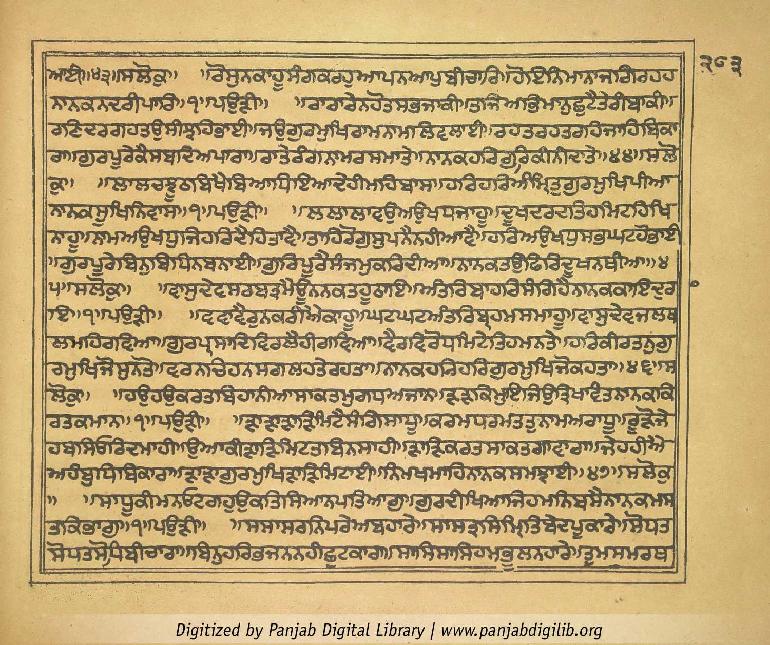 ੨੯੩
ਆਈ॥੪੩॥ਸਲੋਕੁ॥ ॥ਰੋਸੁਨਕਾਹੂਸੰਗਕਰਹੁਆਪਨਆਪੁਬੀਚਾਰਿ॥ਹੋਇਨਿਮਾਨਾਜਗਿਰਹਹੁ
ਨਾਨਕਨਦਰੀਪਾਰਿ॥੧॥ਪਉੜੀ॥ ॥ਰਾਰਾਰੇਨਹੋਤਸਭਜਾਕੀ॥ਤਜਿਅਭਿਮਾਨੁਛੁਟੈਤੇਰੀਬਾਕੀ॥
ਰਣਿਦਰਗਹਤਉਸੀਝਹਿਭਾਈ॥ਜਉਗੁਰਮੁਖਿਰਾਮਨਾਮਲਿਵਲਾਈ॥ਰਹਤਰਹਤਰਹਿਜਾਹਿਬਿਕਾ
ਰਾ॥ਗੁਰਪੂਰੇਕੈਸਬਦਿਅਪਾਰਾ॥ਰਾਤੇਰੰਗਨਾਮਰਸਮਾਤੇ॥ਨਾਨਕਹਰਿਗੁਰਕੀਨੀਦਾਤੇ॥੪੪॥ਸਲੋ
ਕੁ॥ ॥ਲਾਲਚਝੂਠਬਿਖੈਬਿਆਧਿਇਆਦੇਹੀਮਹਿਬਾਸ॥ਹਰਿਹਰਿਅੰਮ੍ਰਿਤੁਗੁਰਮੁਖਿਪੀਆ
ਨਾਨਕਸੂਖਿਨਿਵਾਸ॥੧॥ਪਉੜੀ॥ ॥ਲਲਾਲਾਵਉਅਉਖਧਜਾਹੂ॥ਦੂਖਦਰਦਤਿਹਮਿਟਹਿਖਿ
ਨਾਹੂ॥ਨਾਮਅਉਖਧੁਜਿਹਰਿਦੈਹਿਤਾਵੈ॥ਤਾਹਿਰੋਗੁਸੁਪਨੈਨਹੀਆਵੈ॥ਹਰਿਅਉਖਧੁਸਭਘਟਹੈਭਾਈ
॥ਗੁਰਪੂਰੇਬਿਨੁਬਿਧਿਨਬਨਾਈ॥ਗੁਰਿਪੂਰੈਸੰਜਮੁਕਰਿਦੀਆ॥ਨਾਨਕਤਉਫਿਰਿਦੂਖਨਥੀਆ॥੪
੫॥ਸਲੋਕੁ॥ ॥ਵਾਸੁਦੇਵਸਰਬਤ੍ਰਮੈਊਨਨਕਤਹੂਠਾਇ॥ਅੰਤਰਿਬਾਹਰਿਸੰਗਿਹੈਨਾਨਕਕਾਇਦੁਰਾ
ਇ॥੧॥ਪਉੜੀ॥ ॥ਵਵਾਵੈਰੁਨਕਰੀਐਕਾਹੂ॥ਘਟਘਟਅੰਤਰਿਬ੍ਰਹਮਸਮਾਹੂ॥ਵਾਸੁਦੇਵਜਲਥ
ਲਮਹਿਰਵਿਆ॥ਗੁਰਪ੍ਰਸਾਦਿਵਿਰਲੈਹੀਗਵਿਆ॥ਵੈਰਵਿਰੋਧਮਿਟੇਤਿਹਮਨਤੇ॥ਹਰਿਕੀਰਤਨੁਗੁ
ਰਮੁਖਿਜੋਸੁਨਤੇ॥ਵਰਨਚਿਹਨਸਗਲਹਤੇਰਹਤਾ॥ਨਾਨਕਹਰਿਹਰਿਗੁਰਮੁਖਿਜੋਕਹਤਾ॥੪੬॥ਸ
ਲੋਕੁ॥ ॥ਹਉਹਉਕਰਤਬਿਹਾਨੀਆਸਾਕਤਮੁਗਧਅਜਾਨ॥ੜੜਕਿਮੁਏਜਿਉਤ੍ਰਿਖਾਵੰਤਨਾਨਕਕਿ
ਰਤਕਮਾਨ॥੧॥ਪਉੜੀ॥ ॥ੜਾੜਾੜਾੜਿਮਿਟੈਸੰਗਿਸਾਧੂ॥ਕਰਮਧਰਮਤਤੁਨਾਮਅਰਾਧੂ॥ਰੂੜੋਜਿ
ਹਬਸਿਓਰਿਦਮਾਹੀ॥ਉਆਕੀੜਾੜਿਮਿਟਤਬਿਨਸਾਹੀ॥ੜਾੜਿਕਰਤਸਾਕਤਗਾਵਾਰਾ॥ਜੇਹਹੀਐ
ਅਹੰਬੁਧਿਬਿਕਾਰਾ॥ੜਾੜਾਗੁਰਮੁਖਿੜਾੜਿਮਿਟਾਈ॥ਨਿਮਖਮਾਹਿਨਾਨਕਸਮਝਾਈ॥੪੭॥ਸਲੋਕੁ
॥ ॥ਸਾਧੂਕੀਮਨਓਟਗਹੁਉਕਤਿਸਿਆਨਪਤਿਆਗੁ॥ਗੁਰਦੀਖਿਆਜਿਹਮਨਿਬਸੈਨਾਨਕਮਸ
ਤਕਿਭਾਗੁ॥੧॥ਪਉੜੀ॥ ॥ਸਸਾਸਰਨਿਪਰੇਅਬਹਾਰੇ॥ਸਾਸਤ੍ਰਸਿਮ੍ਰਿਤਿਬੇਦਪੂਕਾਰੇ॥ਸੋਧਤ
ਸੋਧਤਸੋਧਿਬੀਚਾਰਾ॥ਬਿਨੁਹਰਿਭਜਨਨਹੀਛੁਟਕਾਰਾ॥ਸਾਸਿਸਾਸਿਹਮਭੂਲਨਹਾਰੇ॥ਤੁਮਸਮਰਥ
Digitized by Panjab Digital Library | www.panjabdigilib.org